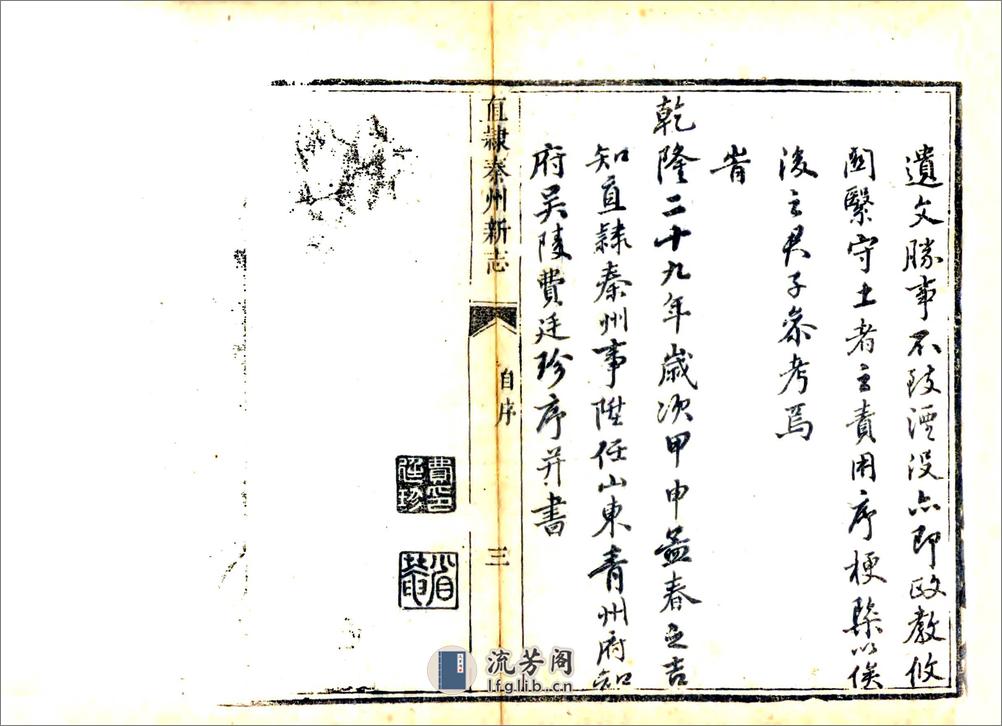 遺文勝事不致湮没亦即政教攸
関繫守土者之責用序梗槩以俟
後之君子叅考焉
旹
乾隆二十九年歲次甲申孟春之吉
知直隷秦州事陞任山東青州府知
府吴陵費廷珍序并書
直隷秦州新志
自序
三
費印廷珍
流芳阁
l.f.g.l.i.b...c.n